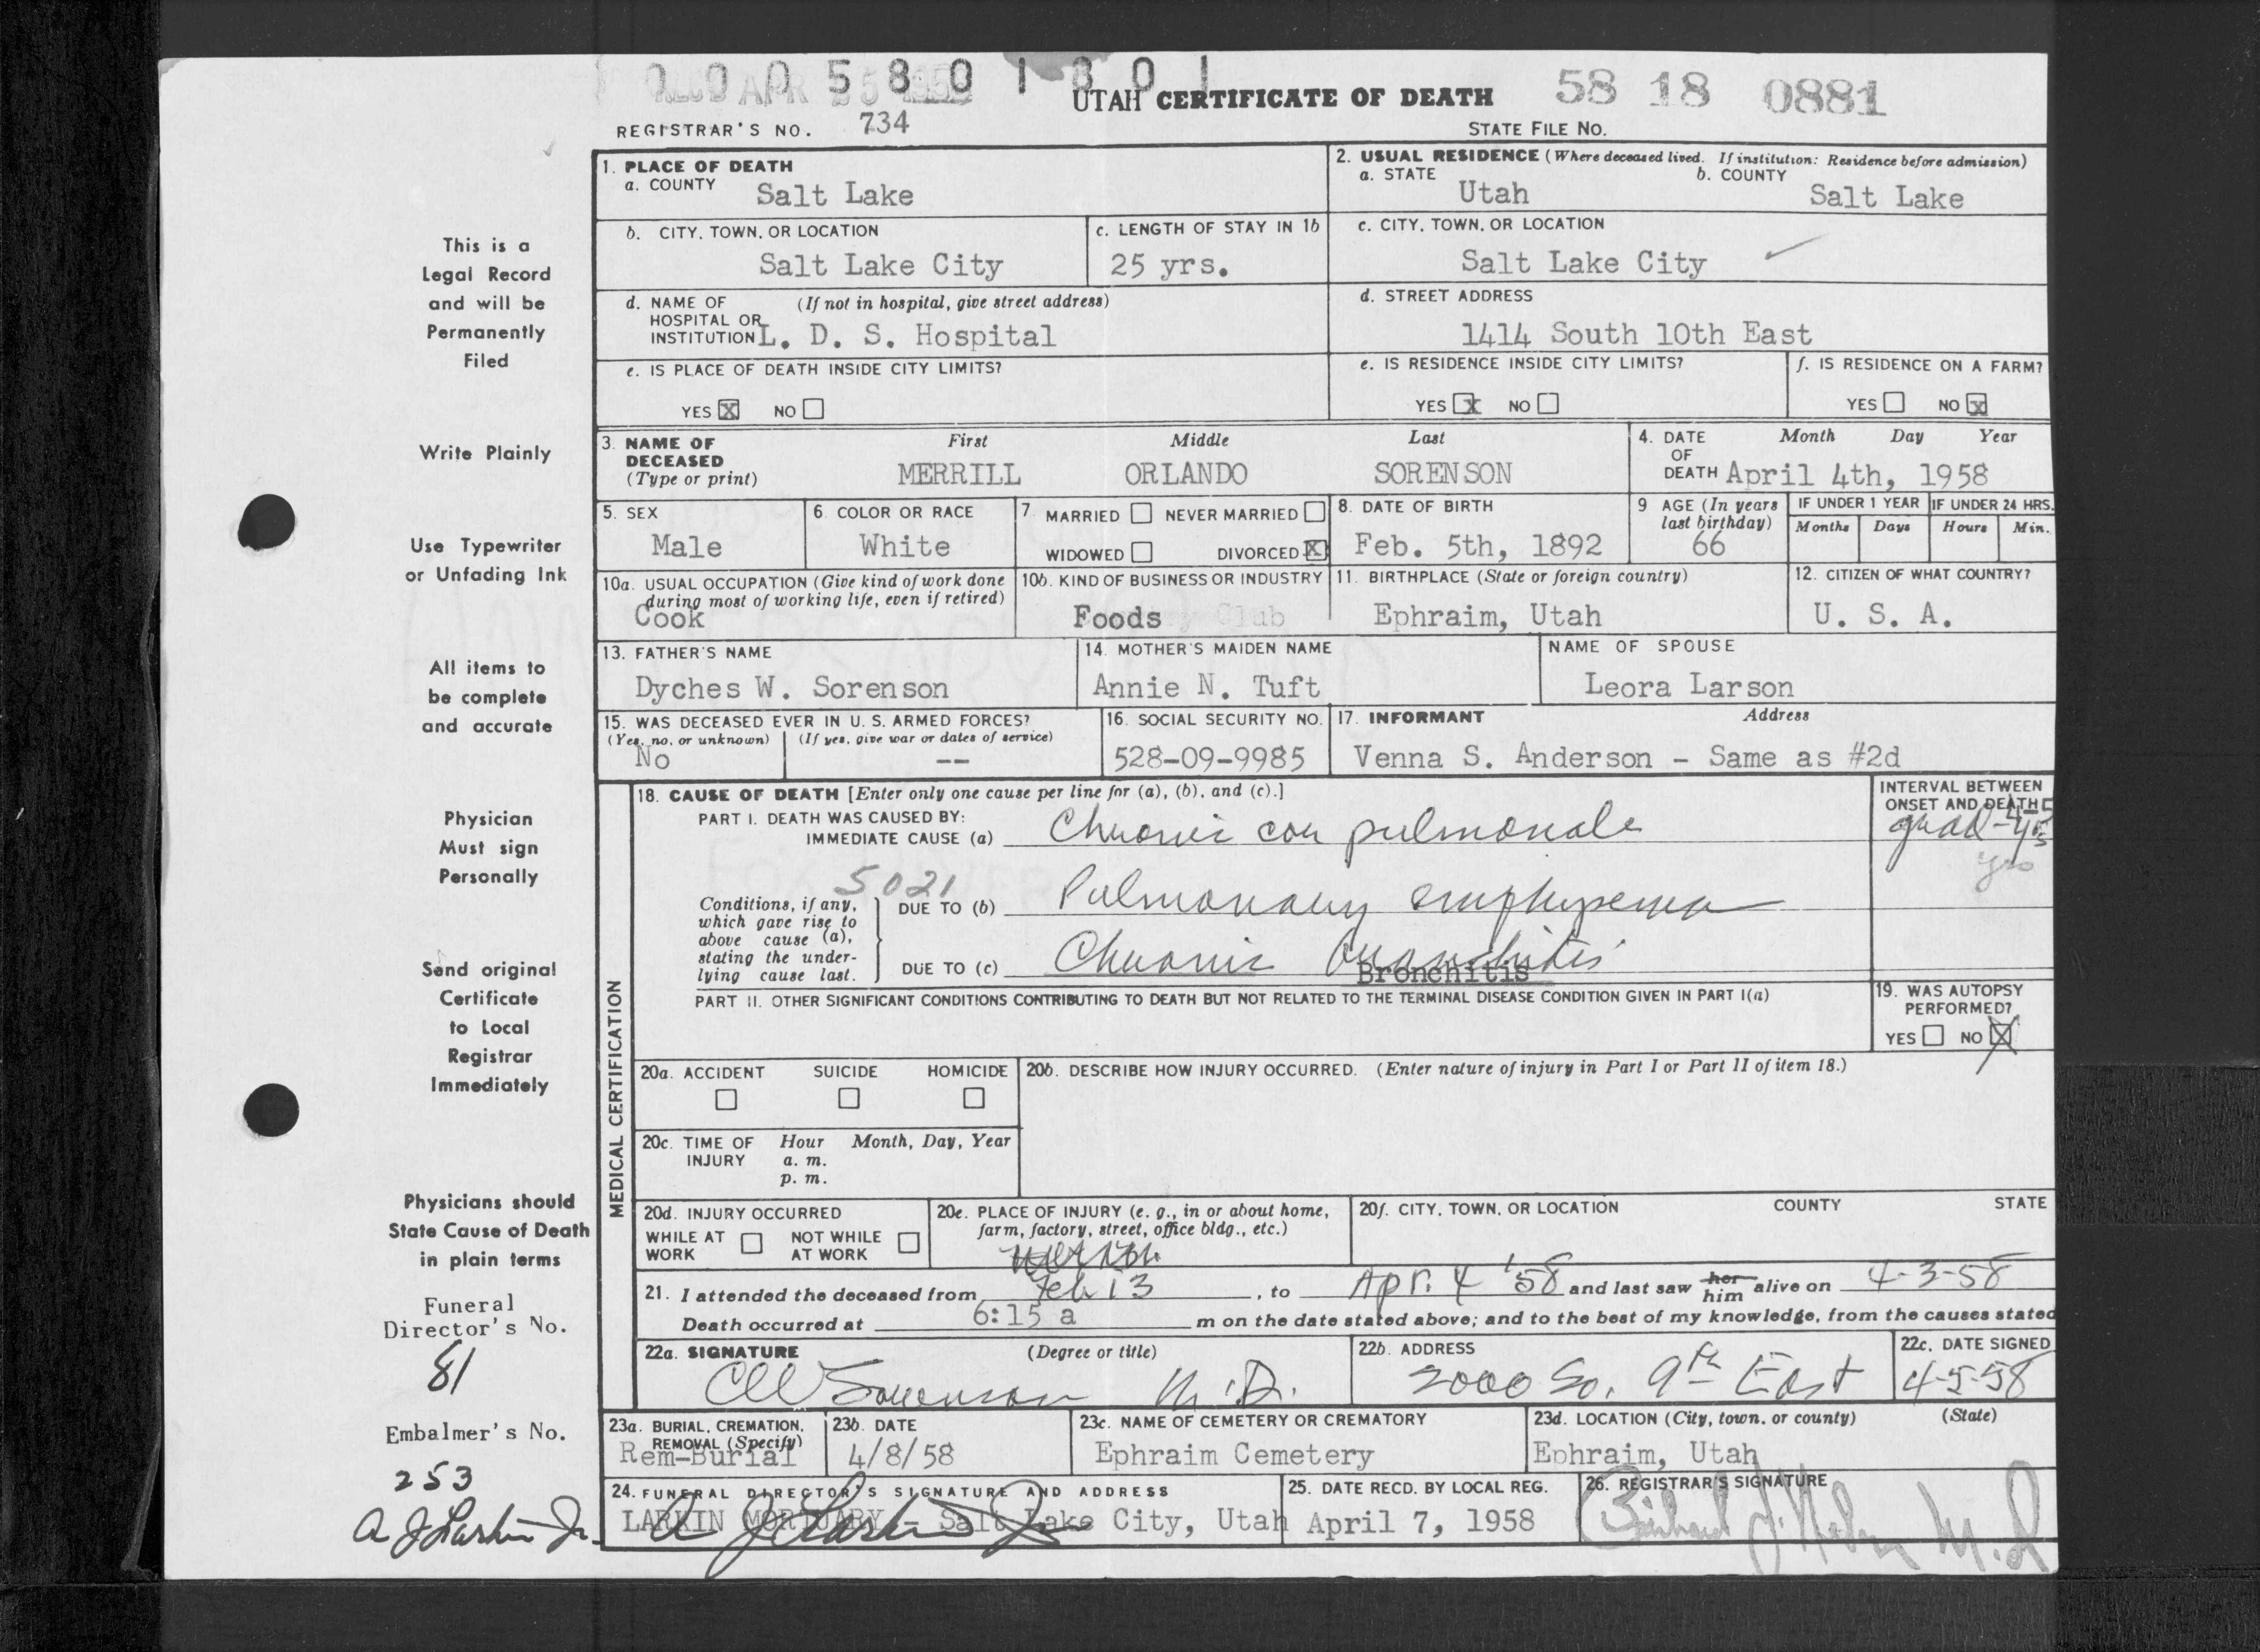 0 0 0 5 8 0 1 8 0 1
UTAH CERTIFICATE OF DEATH 58 18 0881
REGISTRAR'S NO. 734 STATE FILE NO.
1. PLACE OF DEATH
a. COUNTY Salt Lake
2. USUAL RESIDENCE (Where deceased lived. If institution: Residence before admission)
a. STATE Utah b. COUNTY Salt Lake
b. CITY, TOWN, OR LOCATION Salt Lake City
c. LENGTH OF STAY IN 1b 25 yrs.
c. CITY, TOWN, OR LOCATION Salt Lake City
d. NAME OF (If not in hospital, give street address)
HOSPITAL OR
INSTITUTION L. D. S. Hospital
d. STREET ADDRESS
1414 South 10th East
e. IS PLACE OF DEATH INSIDE CITY LIMITS?
YES X NO
e. IS RESIDENCE INSIDE CITY LIMITS?
YES X NO
f. IS RESIDENCE ON A FARM?
YES NO X
3. NAME OF DECEASED (Type or print)
First Middle Last
MERRILL ORLANDO SORENSON
4. DATE OF DEATH Month Day Year
April 4th, 1958
5. SEX Male
6. COLOR OR RACE White
7. MARRIED NEVER MARRIED
WIDOWED DIVORCED X
8. DATE OF BIRTH Feb. 5th, 1892
9 AGE (In years last birthday) 66
IF UNDER 1 YEAR Months Days
IF UNDER 24 HRS. Hours Min.
10a. USUAL OCCUPATION (Give kind of work done during most of working life, even if retired)
Cook
10b. KIND OF BUSINESS OR INDUSTRY
Foods
11. BIRTHPLACE (State or foreign country)
Ephraim, Utah
12. CITIZEN OF WHAT COUNTRY?
U. S. A.
13. FATHER'S NAME
Dyches W. Sorenson
14. MOTHER'S MAIDEN NAME
Annie N. Tuft
NAME OF SPOUSE
Leora Larson
15. WAS DECEASED EVER IN U. S. ARMED FORCES?
(Yes, no, or unknown) (If yes, give war or dates of service)
No --
16. SOCIAL SECURITY NO.
528-09-9985
17. INFORMANT Address
Venna S. Anderson - Same as #2d
MEDICAL CERTIFICATION
18. CAUSE OF DEATH [Enter only one cause per line for (a), (b), and (c).]
INTERVAL BETWEEN ONSET AND DEATH
PART I. DEATH WAS CAUSED BY:
IMMEDIATE CAUSE (a) Chronic cor pulmonale
yrs
5021
Conditions, if any, which gave rise to above cause (a), stating the underlying cause last.
DUE TO (b) Pulmonary emphysema
DUE TO (c) Chronic Bronchitis
Bronchitis
PART II. OTHER SIGNIFICANT CONDITIONS CONTRIBUTING TO DEATH BUT NOT RELATED TO THE TERMINAL DISEASE CONDITION GIVEN IN PART I(a)
19. WAS AUTOPSY PERFORMED?
YES NO X
20a. ACCIDENT SUICIDE HOMICIDE
20b. DESCRIBE HOW INJURY OCCURRED. (Enter nature of injury in Part I or Part II of item 18.)
20c. TIME OF INJURY Hour Month, Day, Year
a. m.
p. m.
20d. INJURY OCCURRED
WHILE AT WORK NOT WHILE AT WORK
20e. PLACE OF INJURY (e. g., in or about home, farm, factory, street, office bldg., etc.)
20f. CITY, TOWN, OR LOCATION COUNTY STATE
21. I attended the deceased from Feb 13, to Apr. 4 '58 and last saw her him alive on 4-3-58
Death occurred at 6:15 a m on the date stated above; and to the best of my knowledge, from the causes stated
22a. SIGNATURE (Degree or title)
CW Sorenson M.D.
22b. ADDRESS
2000 So. 9th East
22c. DATE SIGNED
4-5-58
23a. BURIAL, CREMATION, REMOVAL (Specify)
Rem-Burial
23b. DATE
4/8/58
23c. NAME OF CEMETERY OR CREMATORY
Ephraim Cemetery
23d. LOCATION (City, town, or county) (State)
Ephraim, Utah
24. FUNERAL DIRECTOR'S SIGNATURE AND ADDRESS
LARKIN MORTUARY - Salt Lake City, Utah
A J Larkin Jr
25. DATE RECD. BY LOCAL REG.
April 7, 1958
26. REGISTRAR'S SIGNATURE
M.D.
This is a
Legal Record
and will be
Permanently
Filed
Write Plainly
Use Typewriter
or Unfading Ink
All items to
be complete
and accurate
Physician
Must sign
Personally
Send original
Certificate
to Local
Registrar
Immediately
Physicians should
State Cause of Death
in plain terms
Funeral
Director's No.
81
Embalmer's No.
253
A J Larkin Jr.